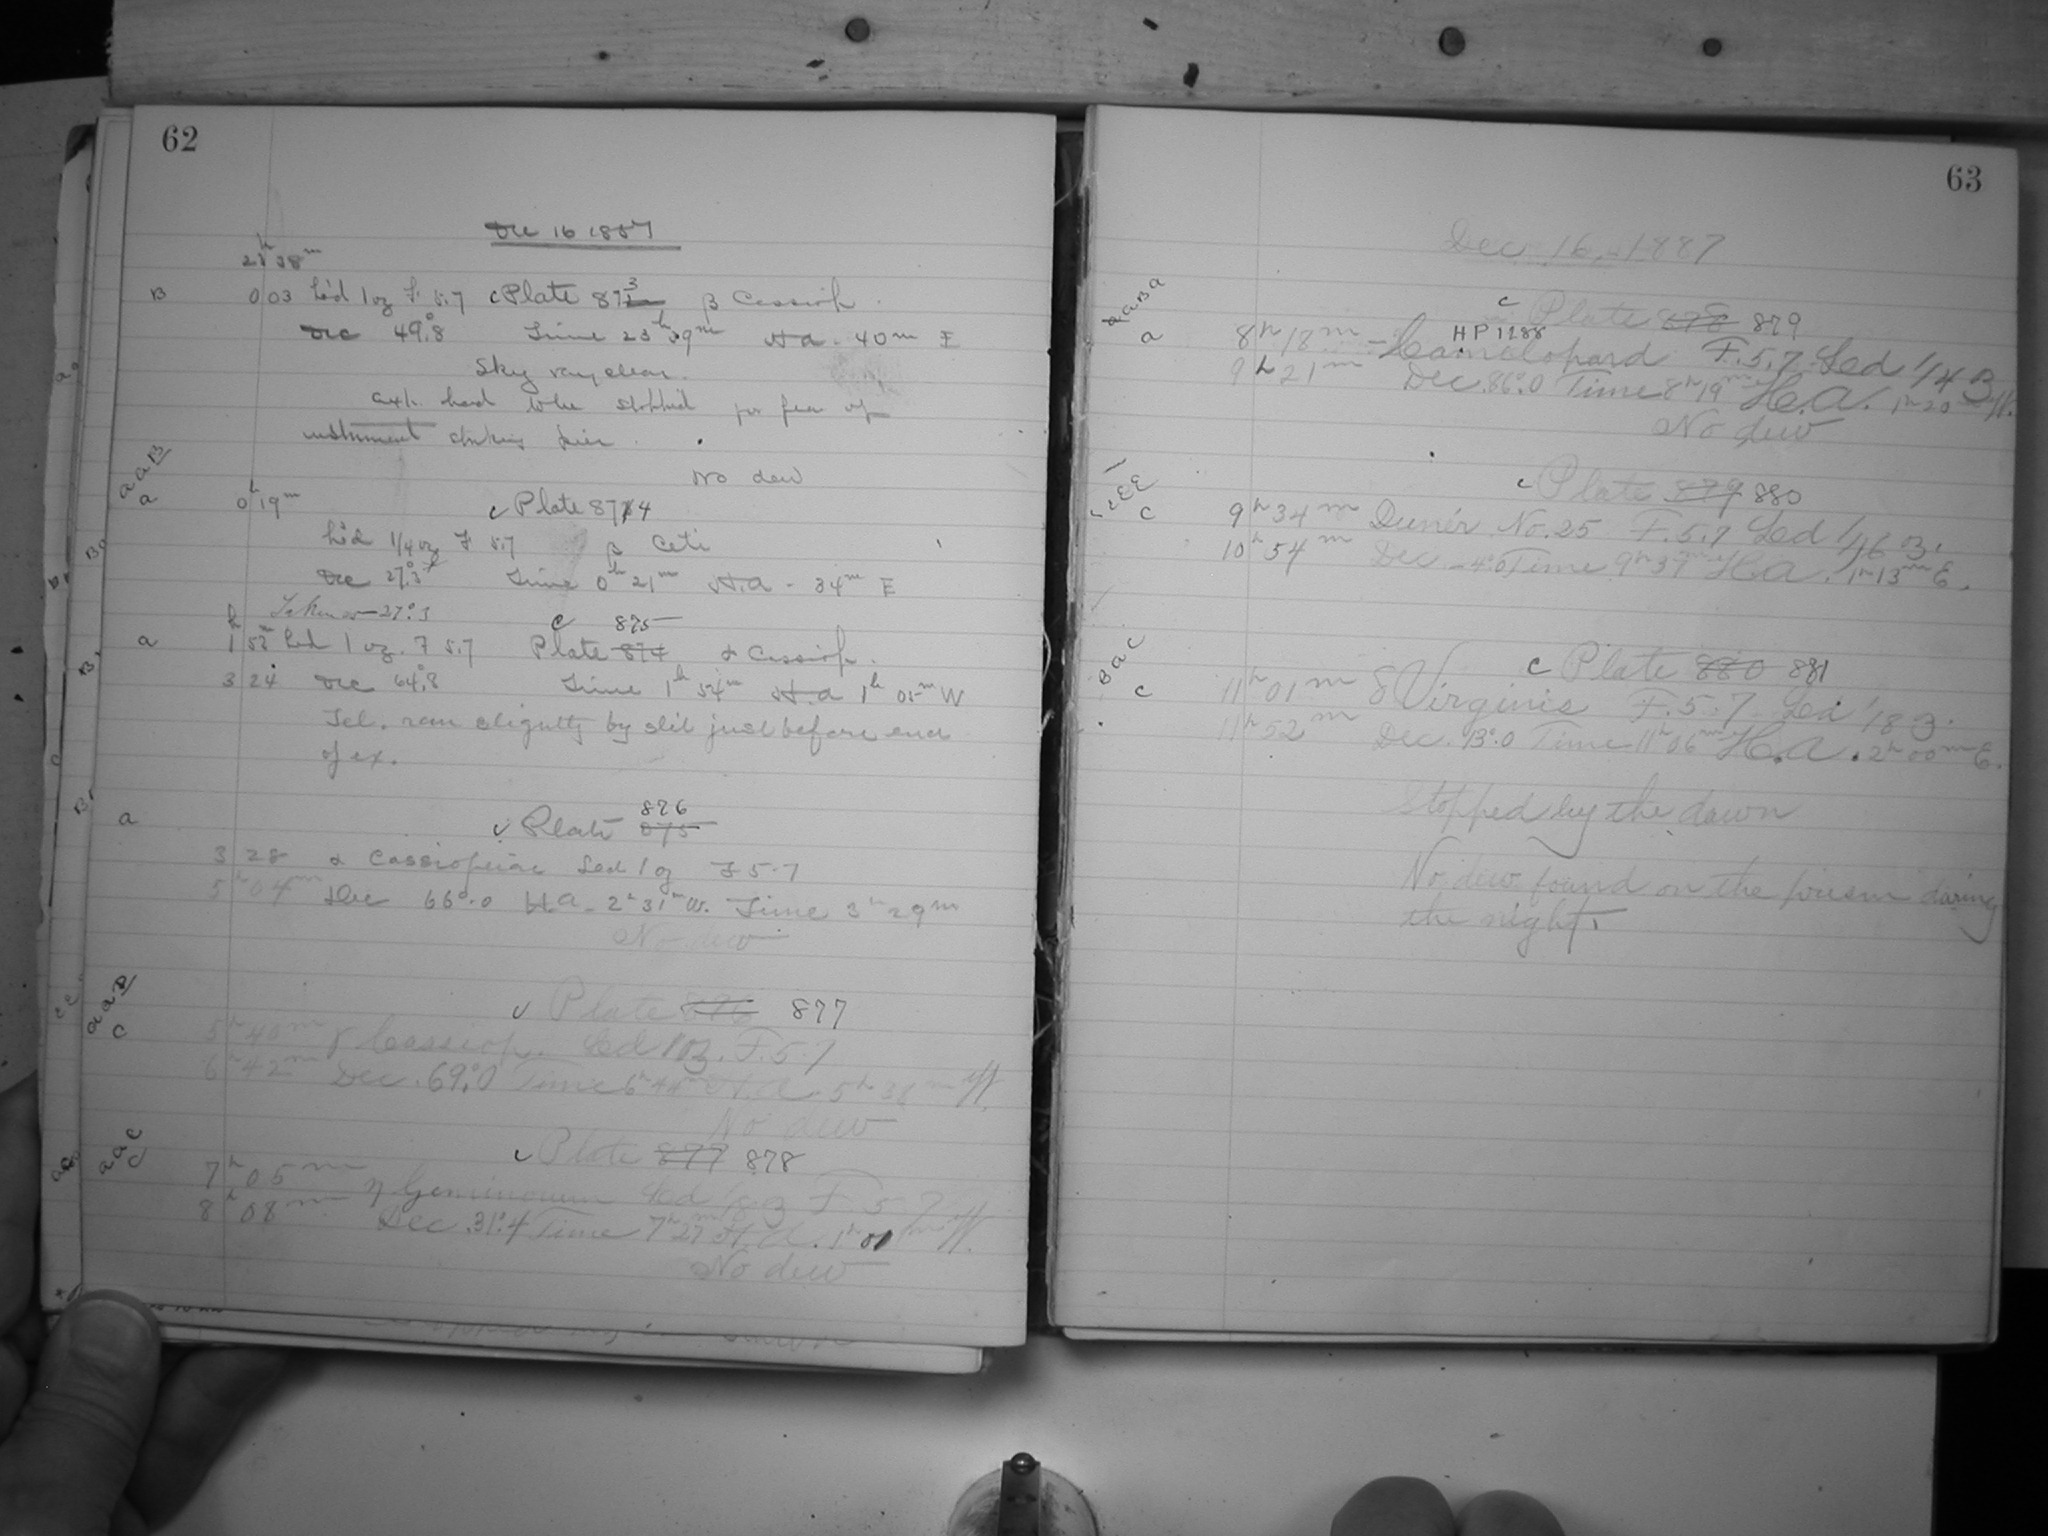 62
Dec 16 1887
23h 38m
B 0 03 Led 1 oz F. 5.7 c Plate 873 β Cassiop.
Dec 49°.8 Time 23h 39m H.a. 40m E
Sky very clear.
had to be stopped for fear of
instrument striking pier.
No dew
a a B
a 0h 19m c Plate 874
Led 1/4 oz F 5.7 β Ceti
Dec 27.3 Time 0h 21m H.a - 34m E
Taken as -27°.3
c 875
a 1h 53m Led 1 oz. F 5.7 Plate 874 α Cassiop.
3 24 Dec 64°.8 Time 1h 54m H.a 1h 05m W
Tel. ran slightly by slit just before end
of ex.
876
a c Plate 875
3 28 α Cassiopeiae Led 1 oz F 5.7
5h 04m Dec 66°.0 H.a. 2h 31m W. Time 3h 29m
No dew
a a B c Plate 876 877
c 5h 40m γ Cassiop. Led 1 oz. F. 5.7
6h 42m Dec. 69°.0 Time 6h 44m H.a. 5h 38m W.
No dew
a a C c Plate 877 878
c 7h 05m η Geminorum Led 1/8 oz F. 5.7
8h 08m Dec. 31°.4 Time 7h 27m H.a. 1h 01m W.
No dew
63
Dec. 16, 1887
a a B a c Plate 878 879
HP 1188
a 8h 18m - Camelopard F. 5.7 Led 1/4 oz
9h 21m Dec. 86°.0 Time 8h 19m H.a. 1h 20m W.
No dew
c Plate 879 880
c 9h 34m Dunér No. 25 F. 5.7 Led 1/16 oz.
10h 54m Dec. -4°.0 Time 9h 37m H.a. 1h 13m E.
B a C c Plate 880 881
c 11h 01m δ Virginis F. 5.7 Led 1/8 oz.
11h 52m Dec. 13°.0 Time 11h 06m H.a. 2h 00m E.
Stopped by the dawn
No dew found on the prism during
the night.